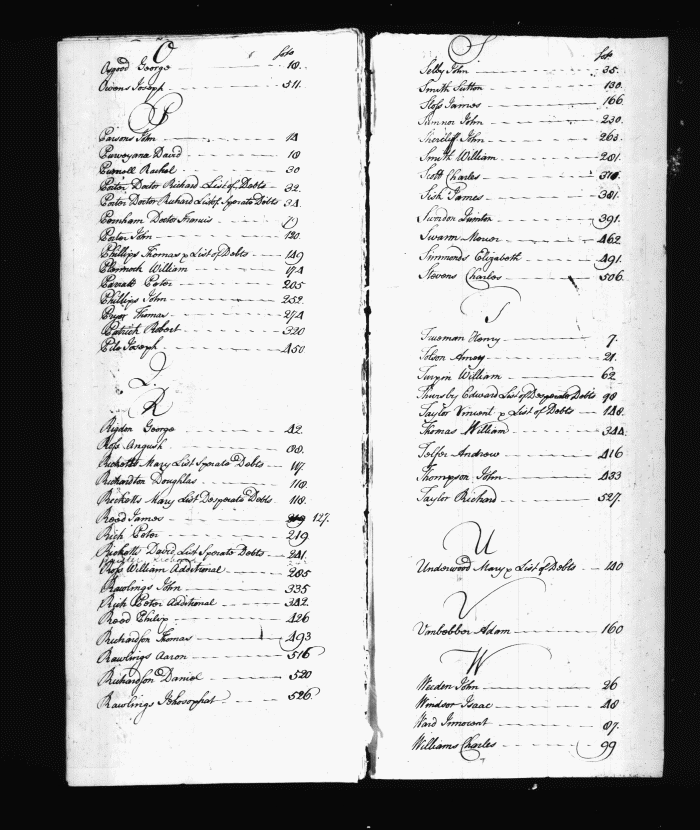 O
folo
Osgood George 18.
Owens Joseph 511.
P
Parsons John 14
Purveyana David 18
Purnell Rachel 30
Porter Doctor Richard List of Debts 32.
Porter Doctor Richard List of Sperate Debts 34.
Pornham Doctor Francis
Porter John 120.
Phillips Thomas p List of Debts 149
William 174
Parratt Peter 205
Phillips John 252.
Pryor Thomas 274
Patrick Robert 320
Pile Joseph 450.
Q
R
Rigdon George 42.
Ross Angush 88.
Ricketts Mary List Sperate Debts 117
Richardson Doughlas 118.
Ricketts Mary List Desperate Debts 118.
Read James 127.
Rich Peter 219
Ricketts David List Sperate Debts 241.
Ross William Additional 285
Rawlings John 335
Rich Peter Additional 342
Read Philip 426
Richardson Thomas 493
Rawlings Aaron 516
Richardson Daniel 520
Rawlings Jehosophat 526
S
folo
Selby John 35.
Smith Sutton 130.
Sloss James 166
Sumner John 230.
Sheriliff John 263.
Smith William 281.
Scott Charles 318.
Sish James 381.
Swordon 391.
Swann 462
Simmonds Elizabeth 491.
Stevens Charles 506.
T
Trueman Henry 7.
Tolson Amey 21.
Turpin William 62
Thursby Edward List of Desperate Debts 98
Taylor Vincent p List of Debts 148.
Thomas William 344.
Telfer Andrew 416
Thompson John 433
Taylor Richard 527.
U
Underwood Mary p List of Debts 140
V
Vanbebber Adam 160
W
Weeden John 26
Windsor Isaac 48
Ward Innocent 87.
Williams Charles 99